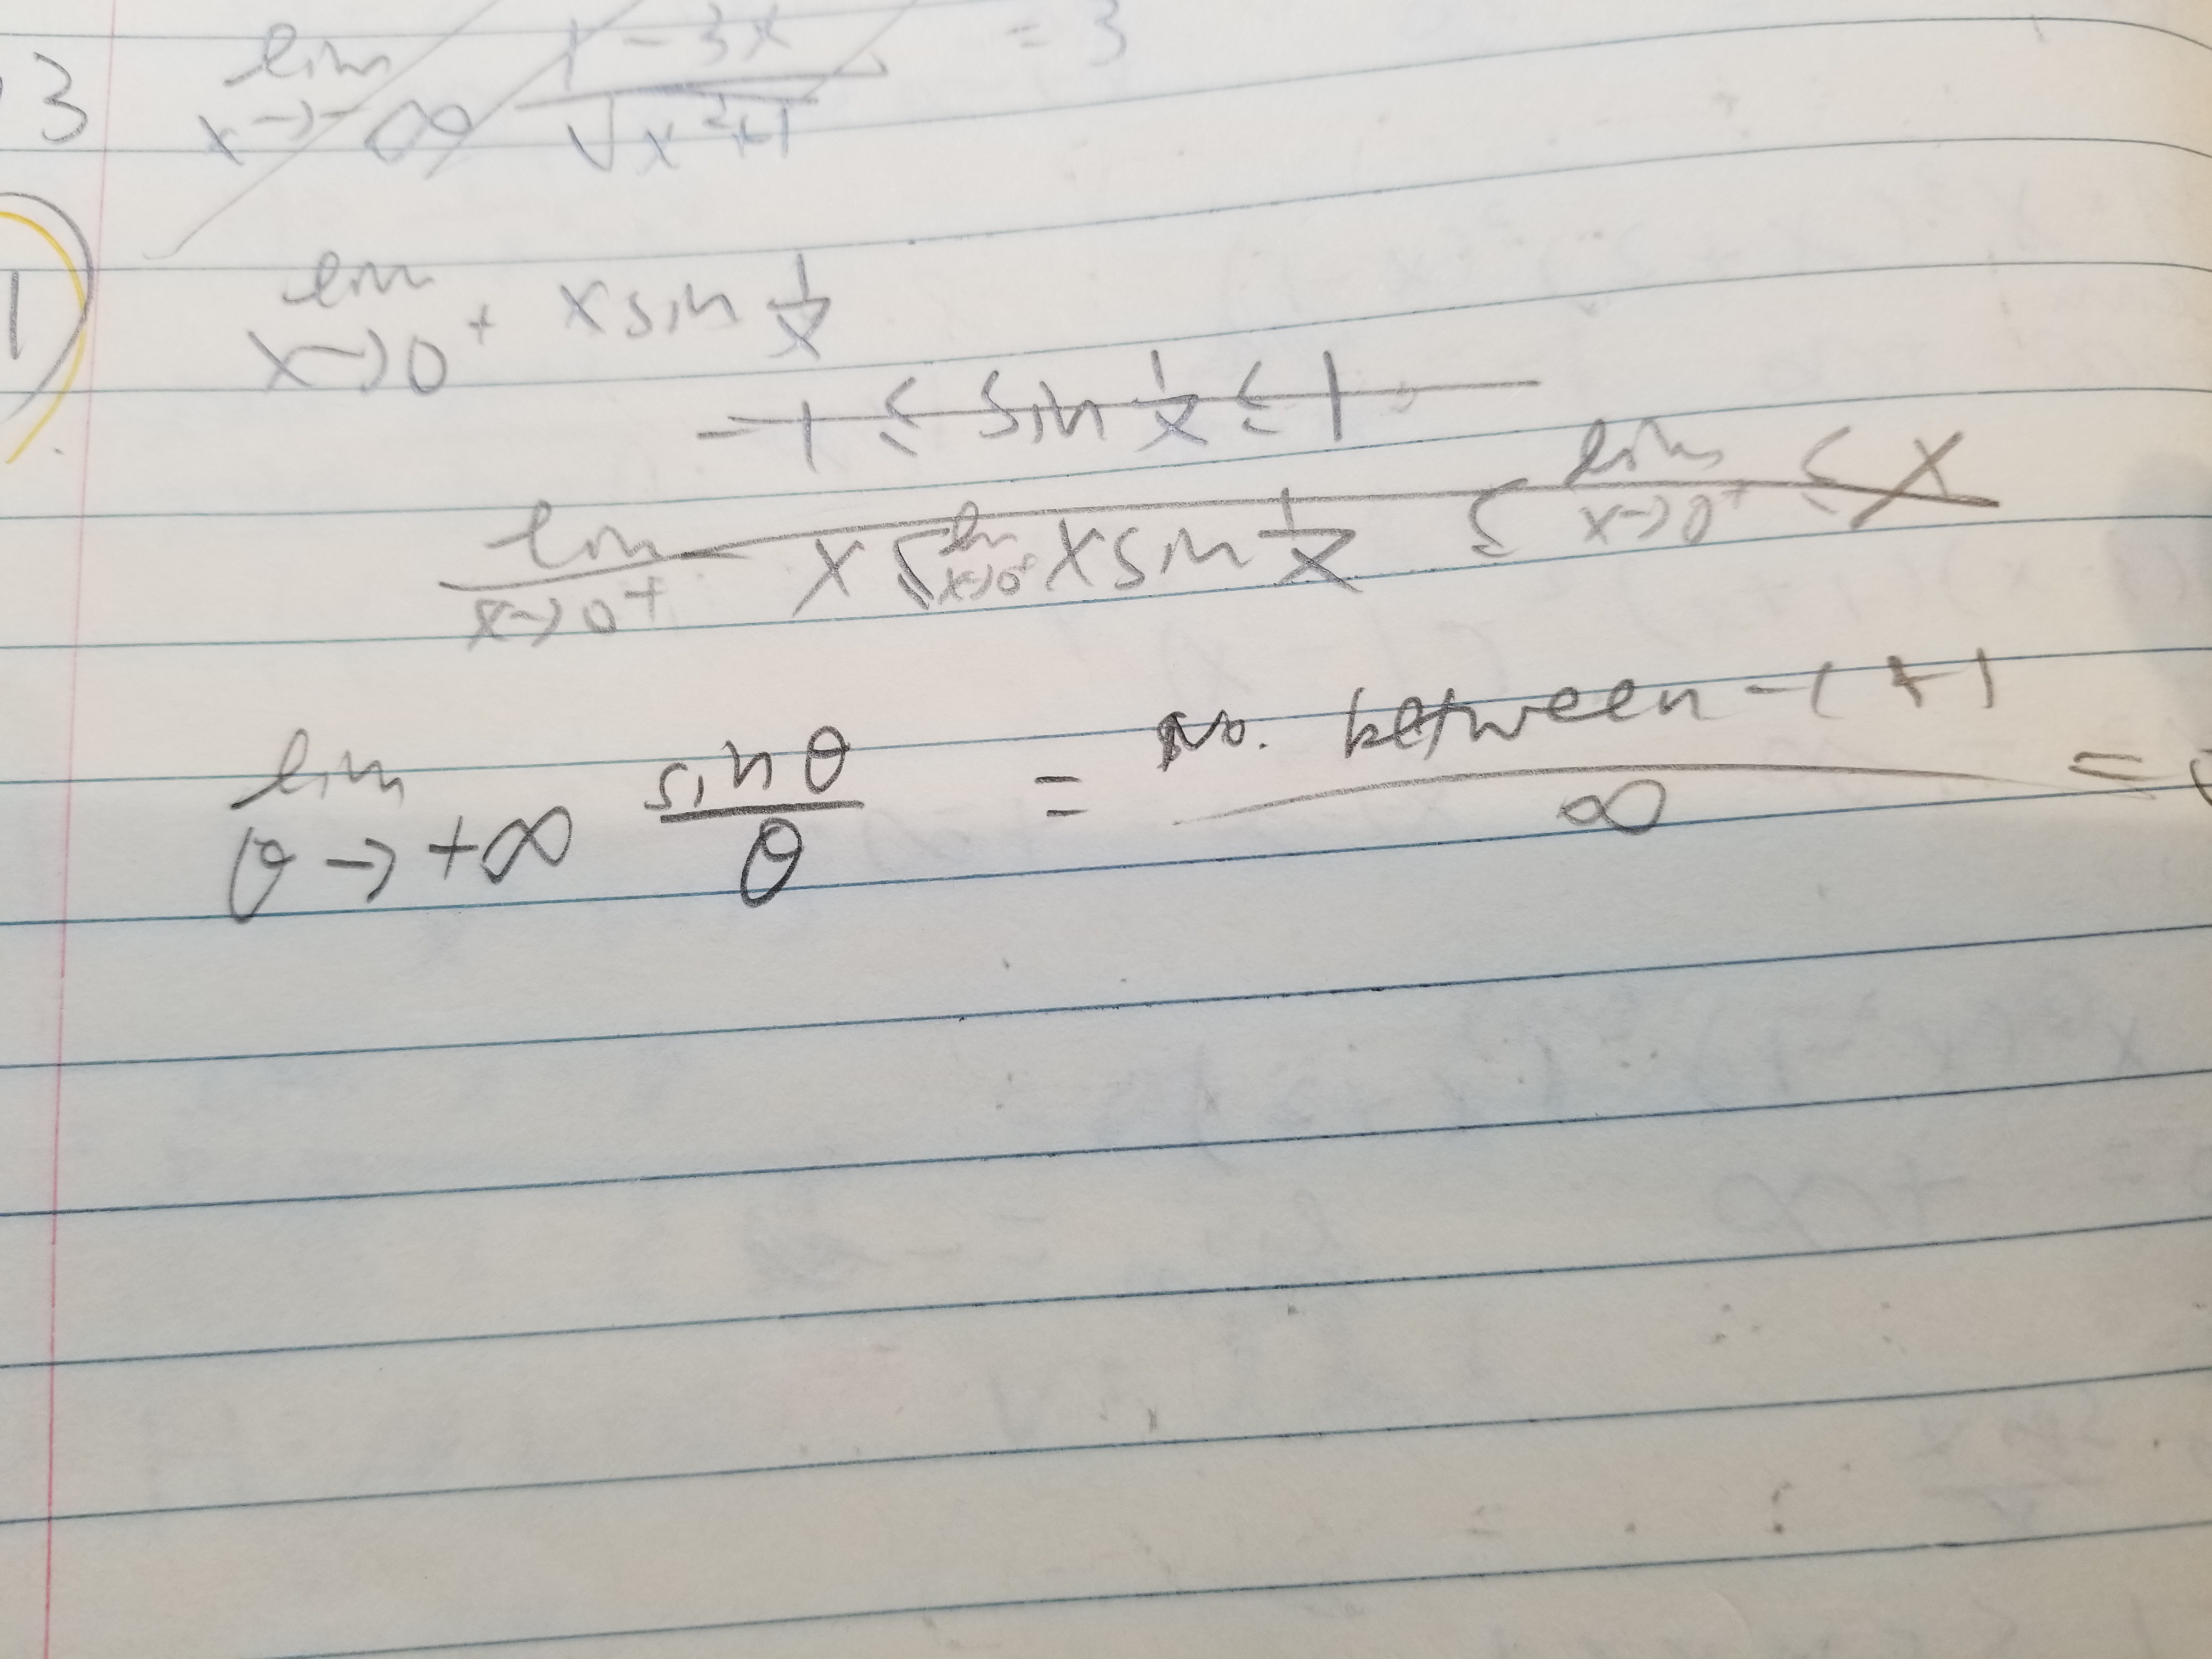 3 lim x→-∞ 1-3x / √x²+1 = 3
1 lim x→0⁺ x sin 1/x
-1 ≤ sin 1/x ≤ 1
lim x→0⁺ - x ≤ lim x→0⁺ x sin 1/x ≤ lim x→0⁺ x
lim θ→+∞ sin θ / θ = no. between -1 +1 / ∞ =